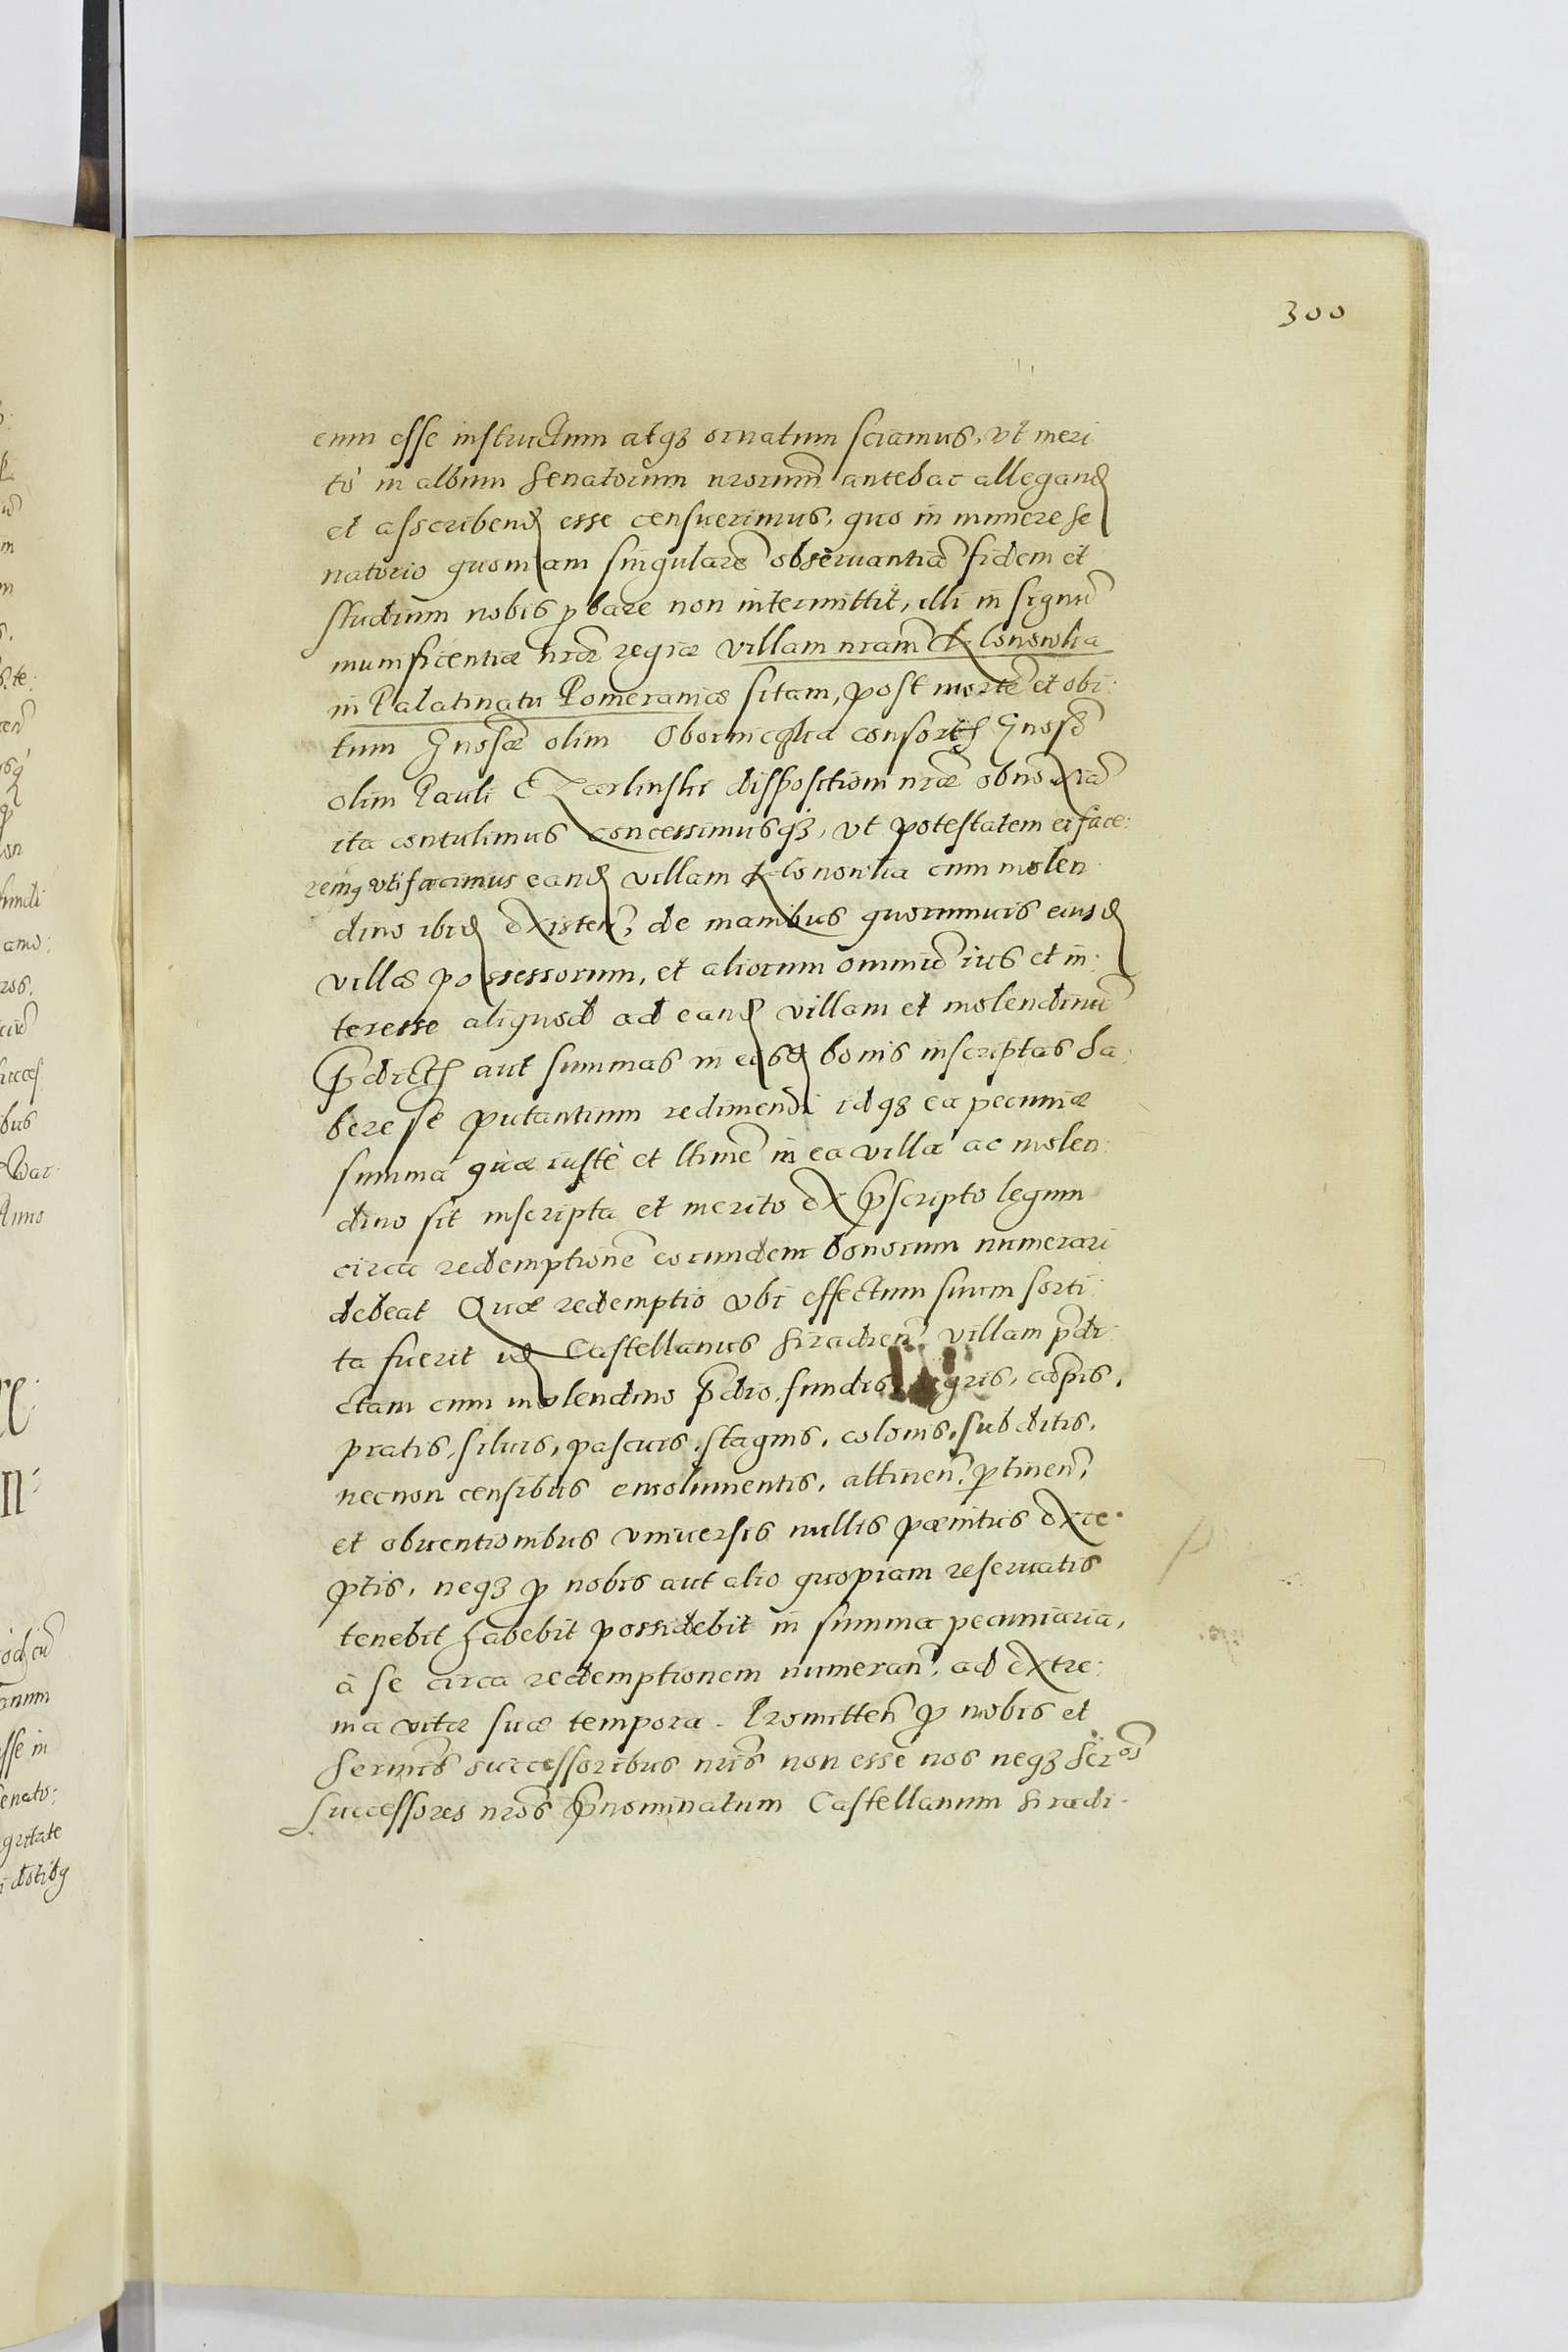 300
eum esse instructum atq3 ornatum sciamus, vt meri
tò in album Senatorum nrorum antehac allegand
et asscribend esse censuerimus, quo in munere se
natorio quoniam singularē obseruantiā fidem et
studium nobis pbare non intermittit, illi in signū
munificentiæ nræ regiæ villam nram Klonowka
in Palatinatu Pomeraniæ sitam, post mortē et obi:
tum Gnosæ olim consortis Gnosi
olim Pauli Czarlinski dispositioni nræ obnoxiā
ita contulimus concessimusq3, vt potestatem ei face:
remq vti facimus eand villam Klonowka cum molen
dino ibid existen, de manibus quorumuis eiusd
villæ possessorum, et aliorum omniū ius et in:
teresse aliquod ad eand villam et molendinū
pdict aut summas in eisd bonis inscriptas ha:
bere se putantium redimendi idq3 ea pecuniæ
summa quæ iustè et ltimē in ea villa ac molen:
dino sit inscripta et merito ex pscripto legum
circa redemptionē eorundem bonorum numerari
debeat Quæ redemptio vbi effectum suum sorti:
ta fuerit id Castellanus Siradien villam pdi:
ctam cum molendino pdio, fundis, agris, cāpis,
pratis, siluis, pascuis, stagnis, colonis, subditis,
necnon censibus emolumentis, attinen, ptinen,
et obuentionibus vniuersis nullis pænitus exce:
ptis, neq3 p nobis aut alio quopiam reseruatis
tenebit habebit possidebit in summa pecuniaria,
à se circa redemptionem numeran, ad extre:
ma vitæ suæ tempora. Promitten p nobis et
Sermis successoribus nris non esse nos neq3 Ser^os
successores nros pnominatum Castellanum Siradi-